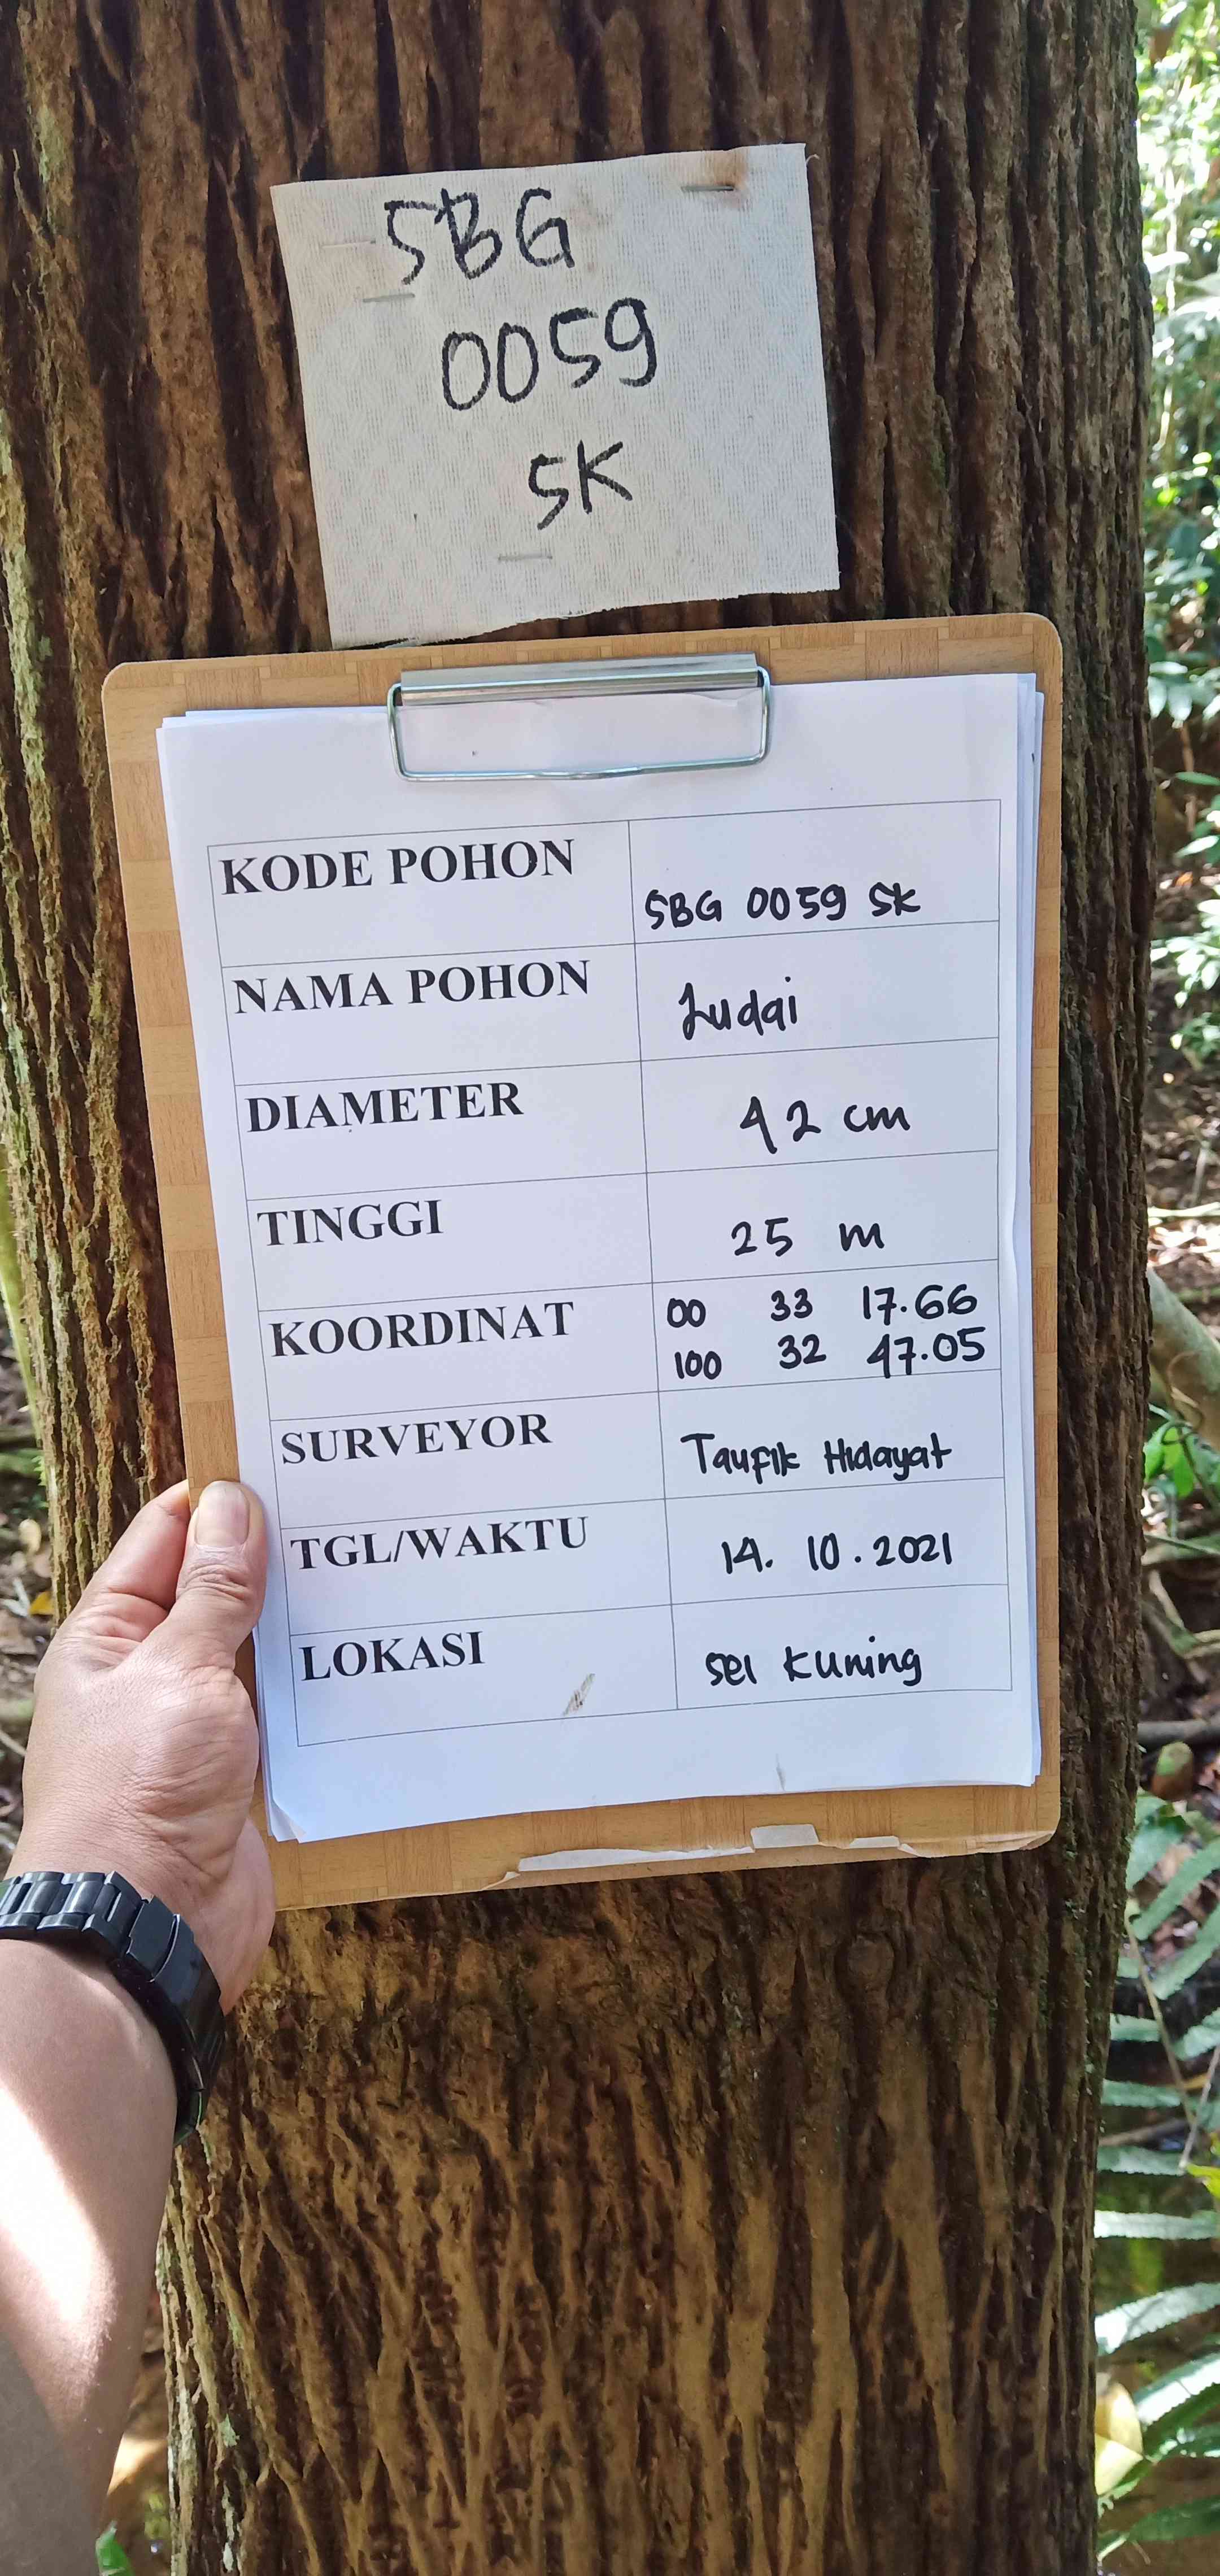 SBG
0059
SK
KODE POHON SBG 0059 SK
NAMA POHON Judai
DIAMETER 42 cm
TINGGI 25 m
KOORDINAT 00 33 17.66
100 32 47.05
SURVEYOR Taufik Hidayat
TGL/WAKTU 14. 10. 2021
LOKASI Sei Kuning